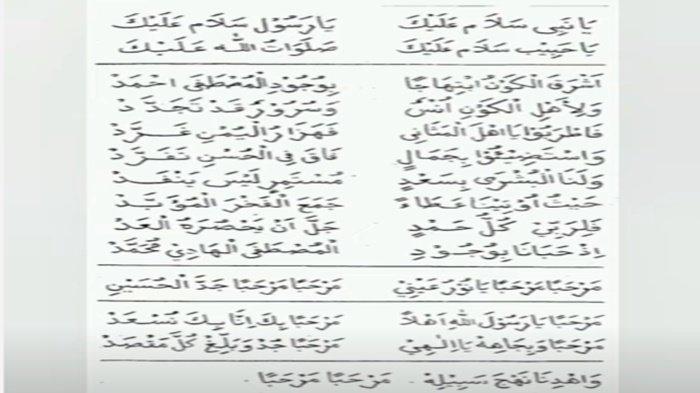 يَا نَبِى سَلَام عَلَيْكَ يَا رَسُوْل سَلَام عَلَيْكَ
يَا حَبِيْب سَلَام عَلَيْكَ صَلَوَاتُ اللّٰه عَلَيْكَ
اَشْرَقَ الْكَوْنُ ابْتِهَاجًا بِوُجُوْدِ الْمُصْطَفَى احْمَدْ
وَلِأَهْلِ الْكَوْنِ اُنْسٌ وَسُرُوْرٌ قَدْ تَجَدَّدْ
فَاطْرَبُوْا يَا اَهْلَ الْمَثَانِى فَهَزَارُ الْيُمْنِ غَرَّدْ
وَاسْتَضِيْئُوْا بِجَمَالٍ فَاقَ فِى الْحُسْنِ تَفَرَّدْ
وَلَنَا الْبُشْرٰى بِسَعْدٍ مُسْتَمِرٍّ لَيْسَ يَنْفَدْ
حَيْثُ اُوْتِيْنَا عَطَاءً جَمَعَ الْفَخْرَ الْمُؤَبَّدْ
فَلِرَبِّيْ كُلُّ حَمْدٍ جَلَّ اَنْ يَحْصُرَهُ الْعَدْ
اِذْ حَبَانَا بِوُجُوْدِ الْمُصْطَفَى الْهَادِيْ مُحَمَّدْ
مَرْحَبًا مَرْحَبًا يَا نُوْرَ عَيْنِيْ مَرْحَبًا مَرْحَبًا جَدَّ الْحُسَيْنِ
مَرْحَبًا يَا رَسُوْلَ اللّٰهِ اَهْلًا مَرْحَبًا بِكَ اِنَّا بِكَ نُسْعَدْ
مَرْحَبًا وَبِجَاهِهْ يَا اِلٰهِيْ مَرْحَبًا جُدْ وَبَلِّغْ كُلَّ مَقْصَدْ
وَاهْدِنَا نَهْجَ سَبِيْلِهْ . مَرْحَبًا مَرْحَبًا .